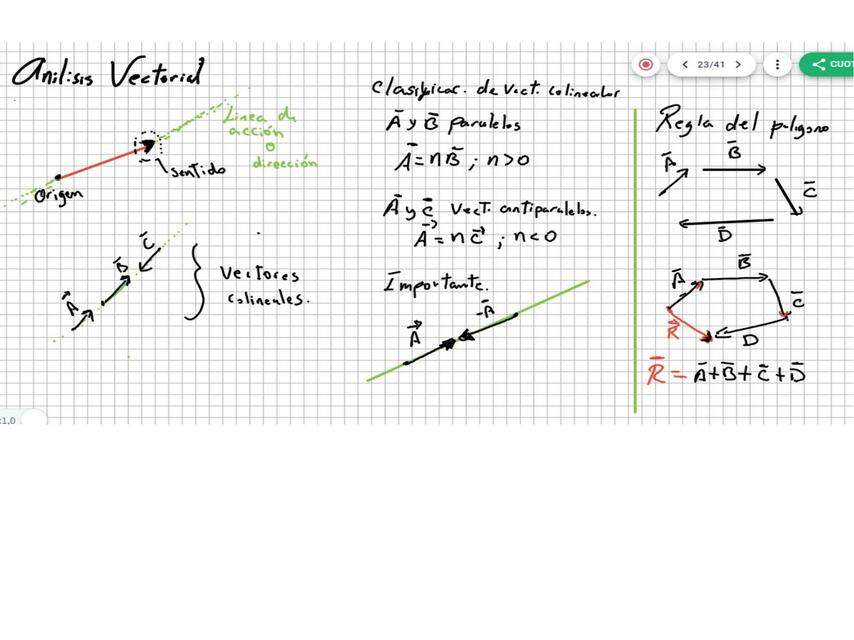 Análisis Vectorial
Línea de
acción
o
dirección
sentido
Origen
A⃗
B̄
C̄
Vectores
colineales.
Clasificac. de Vect. colineales
Ā y B̄ paralelos
Ā = n B̄ ; n > 0
Ā y c̄ Vect. antiparalelos.
A⃗ = n c⃗ ; n < 0
Importante.
A⃗
-Ā
23/41
CUOT
Regla del polígono
Ā
B̄
C̄
D̄
Ā
B̄
C̄
D
R⃗
R̄ = Ā + B̄ + C̄ + D̄
:1,0